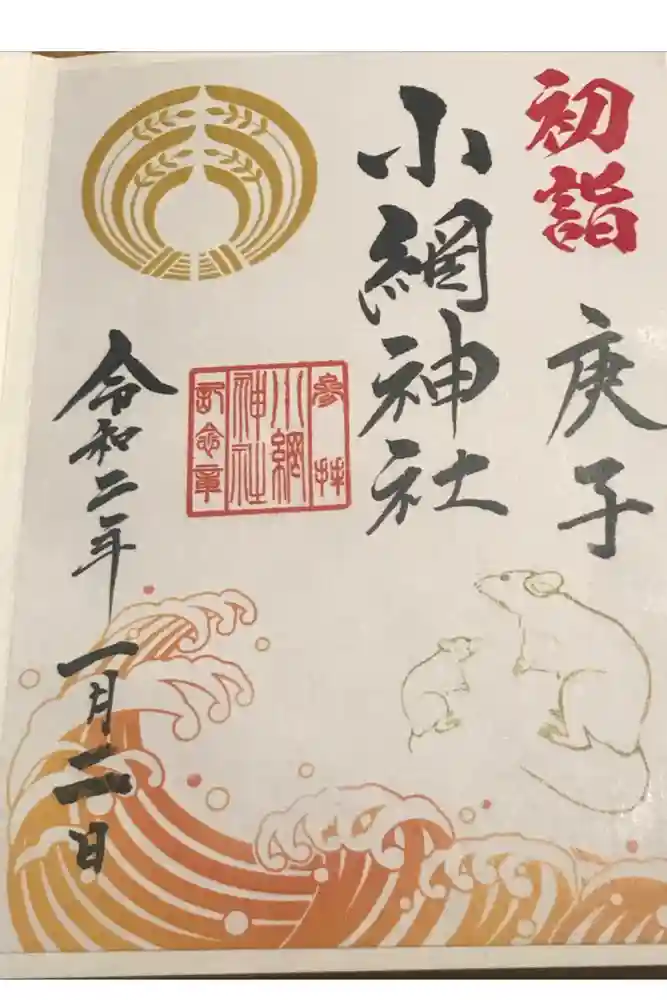 初詣
庚子
小網神社
參拝
小網
神社
記念章
令和二年 一月二日